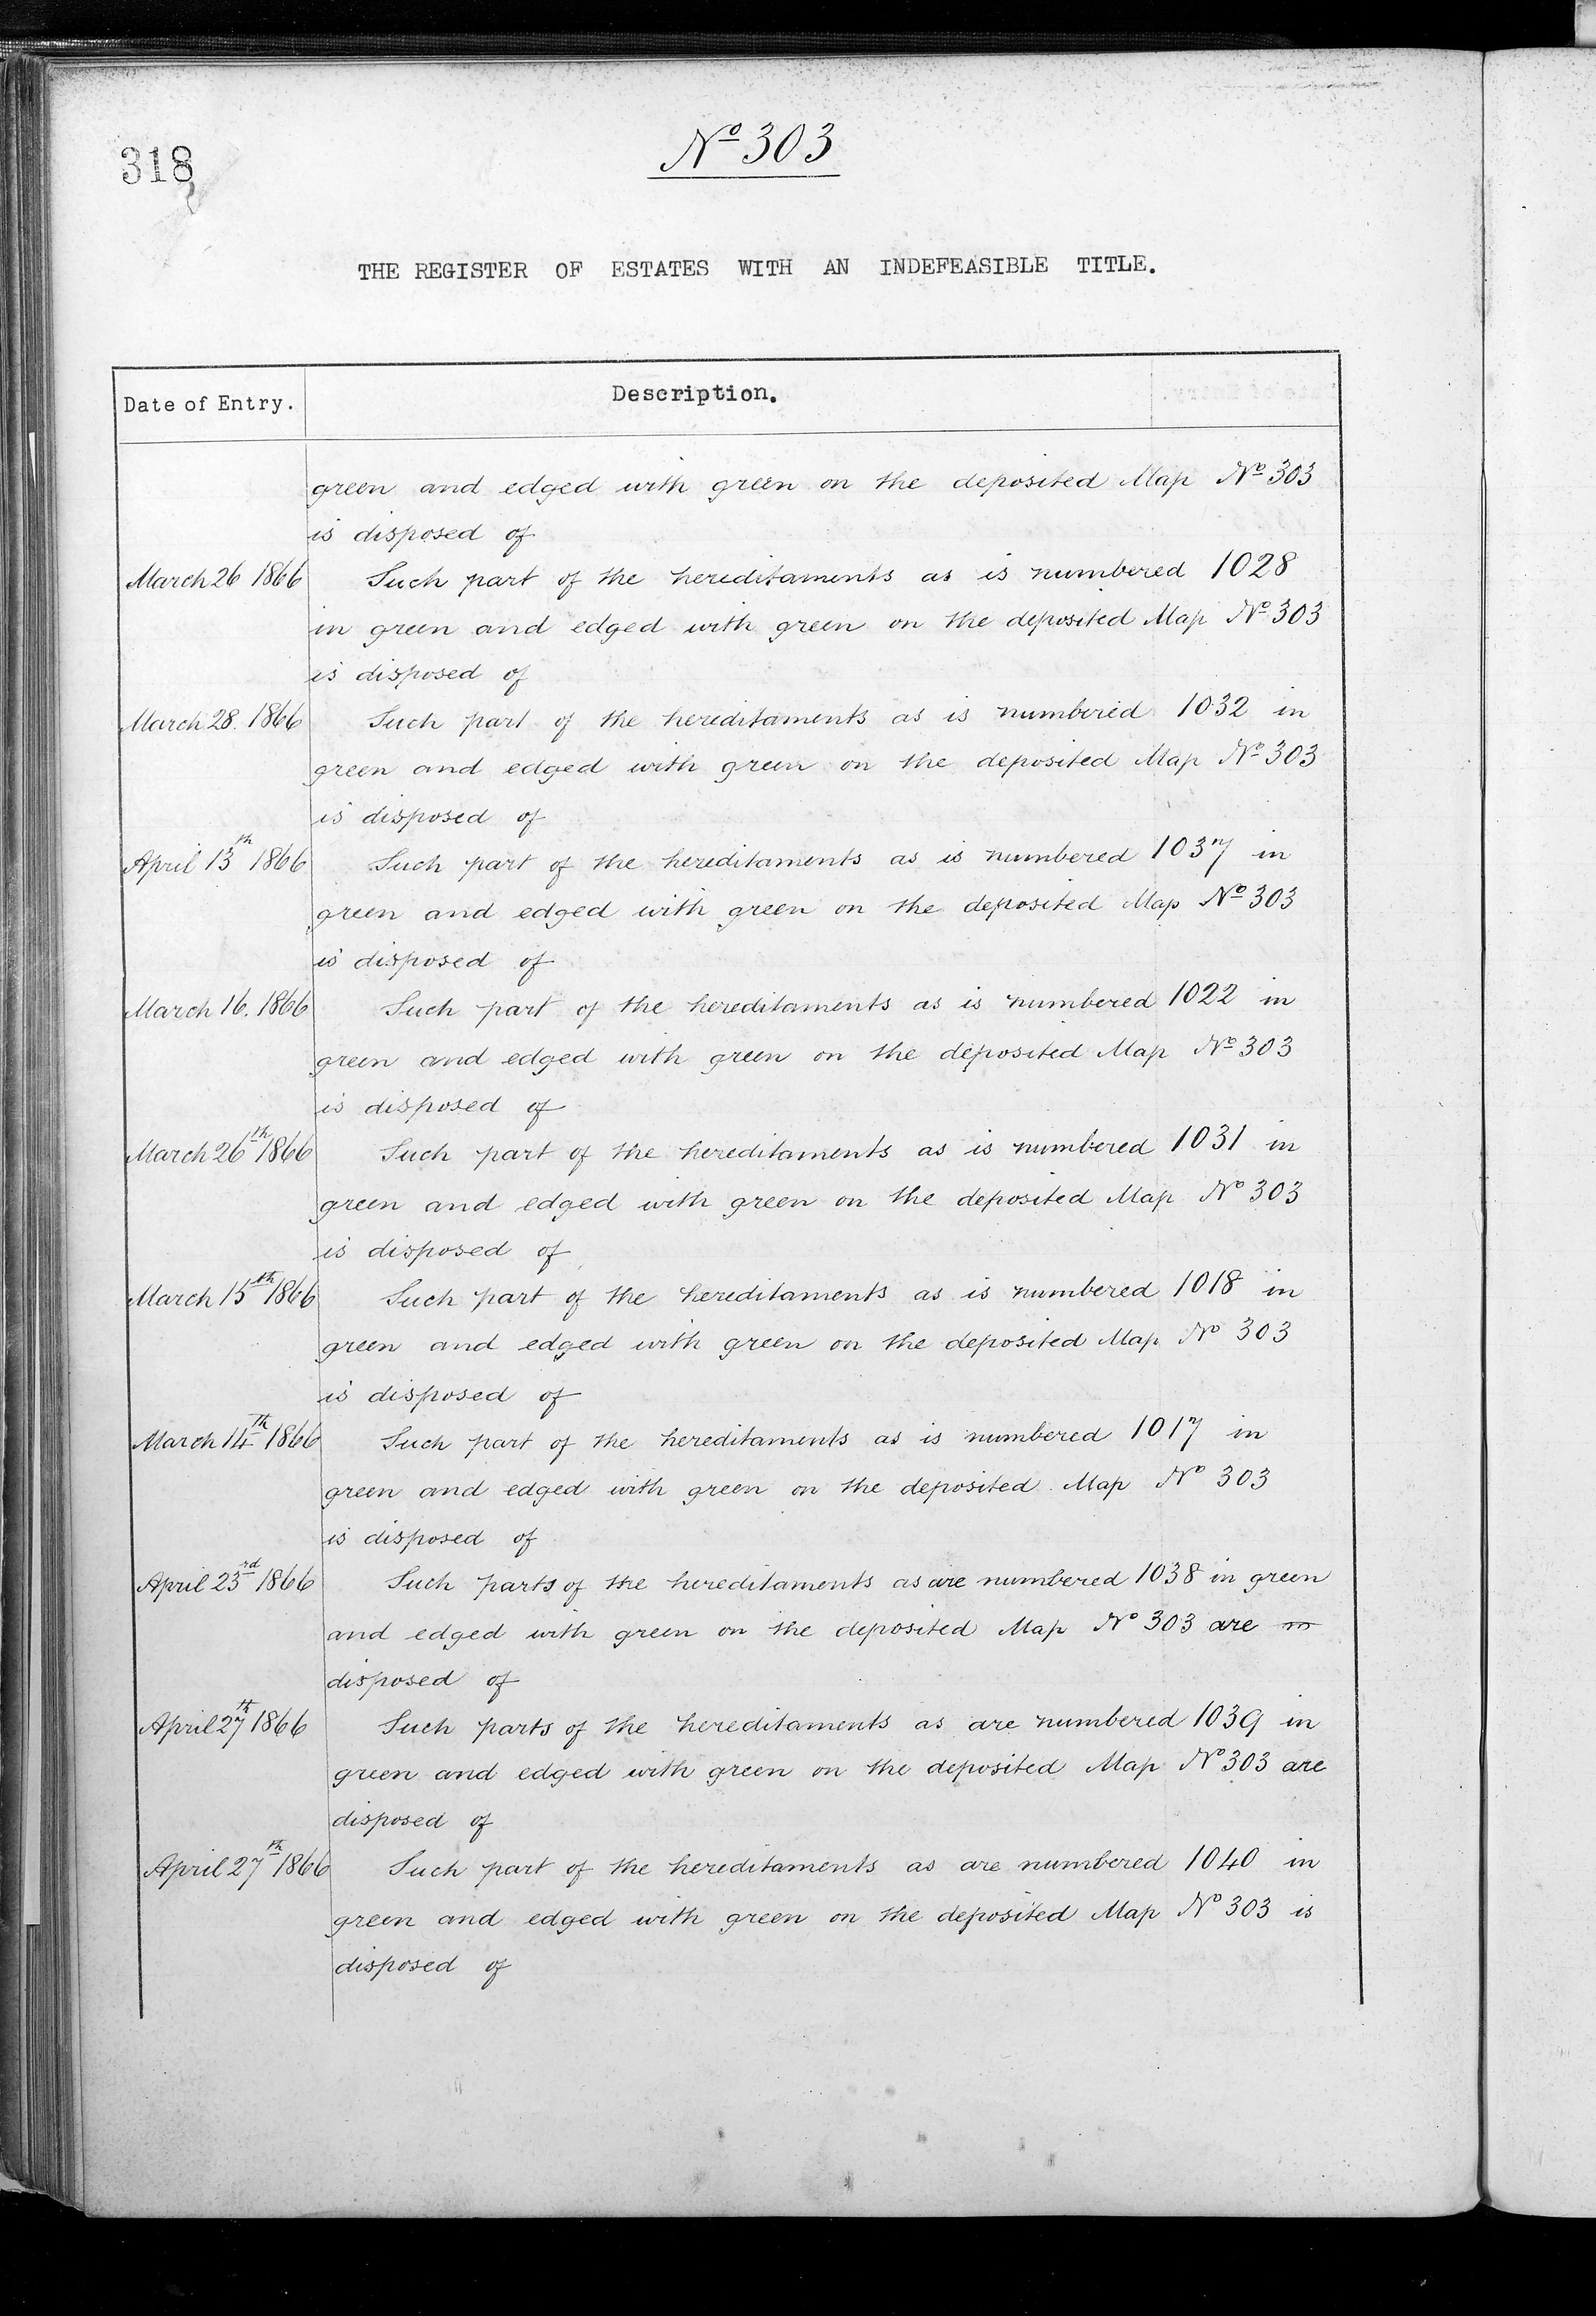 318
Nº 303
THE REGISTER OF ESTATES WITH AN INDEFEASIBLE TITLE.
Date of Entry. Description.
green and edged with green on the deposited Map Nº 303
is disposed of
March 26 1866 Such part of the hereditaments as is numbered 1028
in green and edged with green on the deposited Map Nº 303
is disposed of
March 28. 1866 Such part of the hereditaments as is numbered 1032 in
green and edged with green on the deposited Map Nº 303
is disposed of
April 13th 1866 Such part of the hereditaments as is numbered 1037 in
green and edged with green on the deposited Map Nº 303
is disposed of
March 16. 1866 Such part of the hereditaments as is numbered 1022 in
green and edged with green on the deposited Map Nº 303
is disposed of
March 26th 1866 Such part of the hereditaments as is numbered 1031 in
green and edged with green on the deposited Map Nº 303
is disposed of
March 15th 1866 Such part of the hereditaments as is numbered 1018 in
green and edged with green on the deposited Map Nº 303
is disposed of
March 14th 1866 Such part of the hereditaments as is numbered 1017 in
green and edged with green on the deposited Map Nº 303
is disposed of
April 23rd 1866 Such parts of the hereditaments as are numbered 1038 in green
and edged with green on the deposited Map Nº 303 are
disposed of
April 27th 1866 Such parts of the hereditaments as are numbered 1039 in
green and edged with green on the deposited Map Nº 303 are
disposed of
April 27th 1866 Such part of the hereditaments as are numbered 1040 in
green and edged with green on the deposited Map Nº 303 is
disposed of